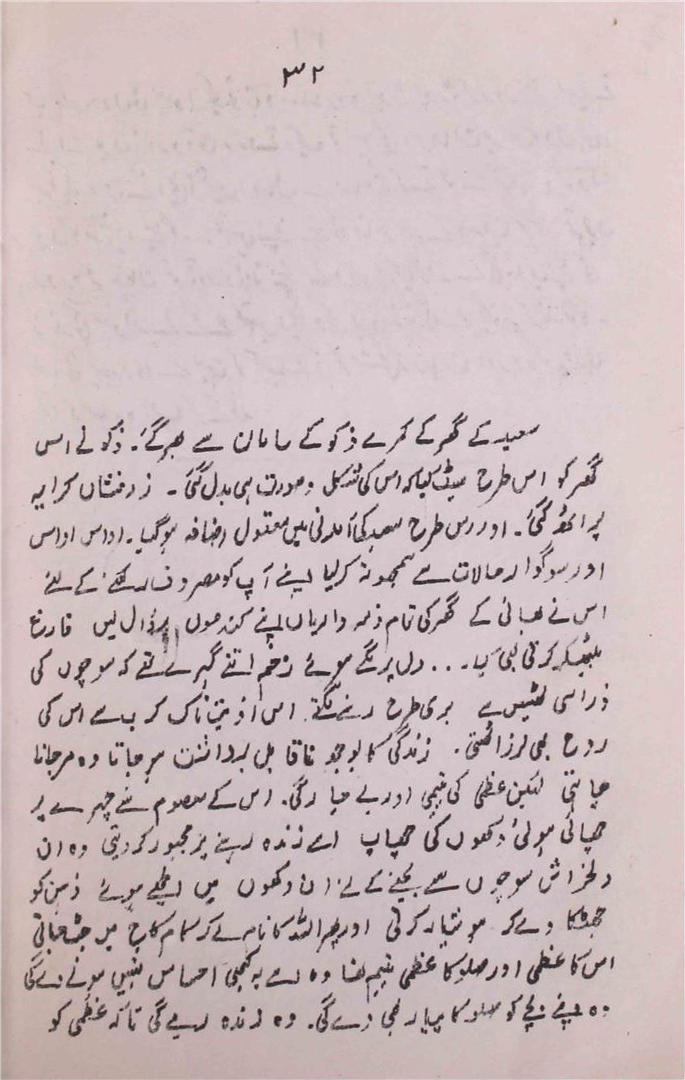 ۳۲
سعید کے گھر کے کمرے ذکو کے سامان سے بھر گئے۔ ذکو نے اس
گھر کو اس طرح سیٹ کیا کہ اس کی شکل و صورت ہی بدل گئی۔ زرفشاں کرایہ
پر اٹھ گئی۔ اور اس طرح سعید کی آمدنی میں معقول اضافہ ہو گیا۔ اداس اداس
اور سوگوار حالات سے سمجھوتہ کر لیا اپنے آپ کو مصروف رکھنے کے لئے
اس نے بھائی کے گھر کی تمام ذمہ داریاں اپنے کندھوں پر ڈال لیں فارغ
بیٹھ کر کرتی بھی کیا ... دل پر لگے ہوئے زخم اتنے گہرے تھے کہ سوچوں کی
ذرا سی ٹھیس سے بری طرح رسنے لگتے اس اذیت ناک کرب سے اس کی
روح بھی لرز اٹھتی۔ زندگی کا بوجھ ناقابل برداشت ہو جاتا وہ مر جانا
چاہتی لیکن عظمیٰ کی یتیمی اور بے چارگی۔ اس کے معصوم سے چہرے پر
چھائی ہوئی دکھوں کی چھاپ اسے زندہ رہنے پر مجبور کر دیتی وہ ان
دلخراش سوچوں سے بچنے کے لئے ان دکھوں میں الجھے ہوئے ذہن کو
جھٹکا دے کر ہوشیار کرتی اور پھر اللہ کا نام لے کر کام کاج میں جٹ جاتی
اس کا عظمیٰ اور صلو کا عظمیٰ یتیم تھا وہ اسے یہ کبھی احساس نہیں ہونے دے گی
وہ اپنے بچے کو صلو کا پیار بھی دے گی۔ وہ زندہ رہے گی تاکہ عظمیٰ کو